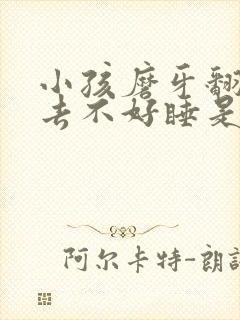 小孩磨牙翻
去不好睡是
阿尔卡特-朗